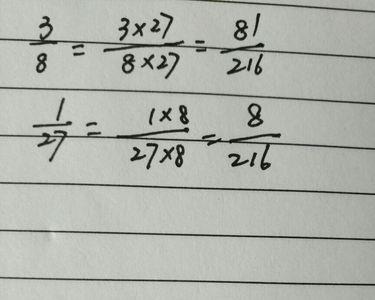 3/8 = 3×27/8×27 = 81/216
1/27 = 1×8/27×8 = 8/216